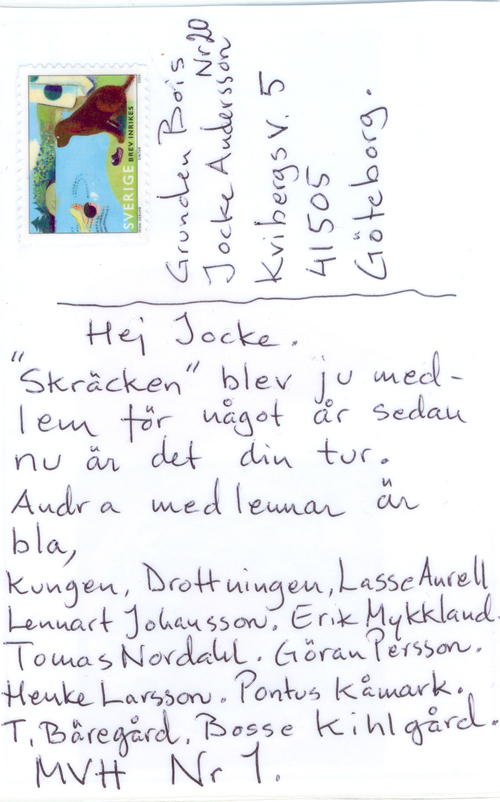 SVERIGE BREV INRIKES
Grunden Bois
Nr 20
Jocke Andersson
Kvibergs v. 5
41505
Göteborg.
Hej Jocke.
"Skräcken" blev ju med-
lem för något år sedan
nu är det din tur.
Andra medlemmar är
bla,
Kungen, Drottningen, Lasse Anrell
Lennart Johansson. Erik Mykkland.
Tomas Nordahl. Göran Persson.
Henke Larsson. Pontus Kåmark.
T. Bäregård, Bosse Kihlgård.
MVH Nr 1.